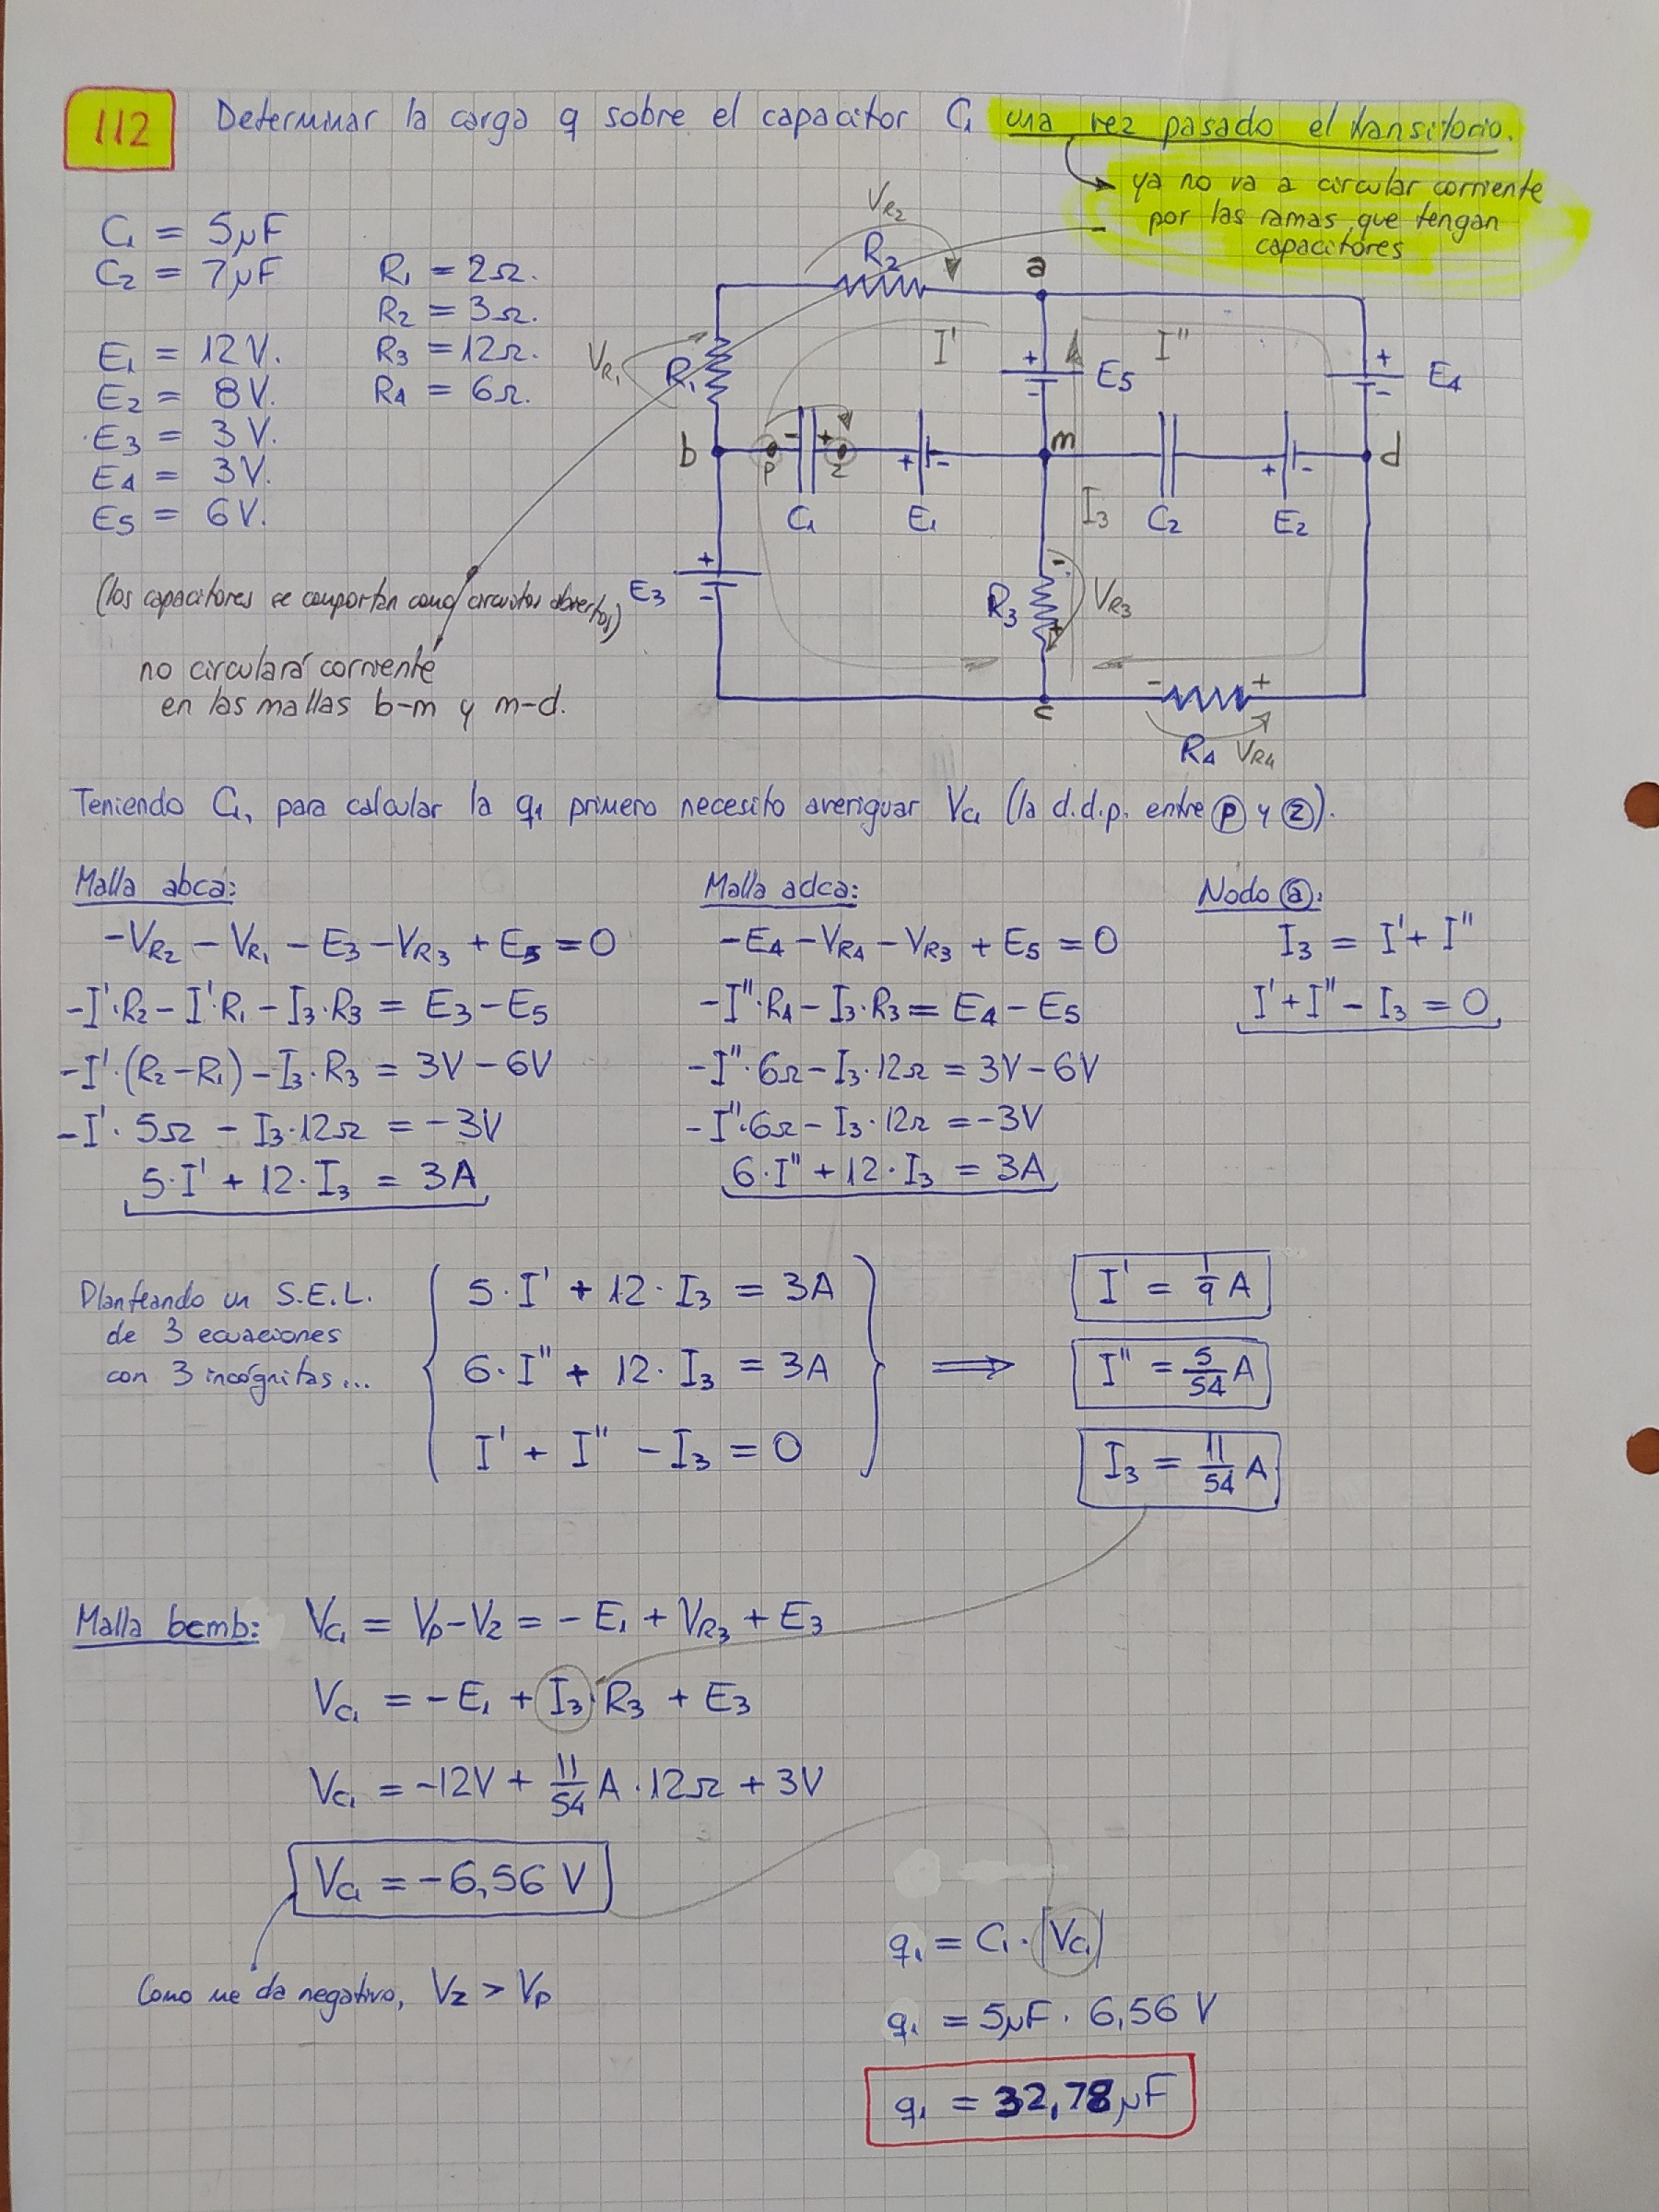 112 Determinar la carga q sobre el capacitor C₁ una vez pasado el transitorio.
ya no va a circular corriente
por las ramas que tengan
capacitores
C₁ = 5μF
C₂ = 7μF
E₁ = 12V.
E₂ = 8V.
E₃ = 3V.
E₄ = 3V.
E₅ = 6V.
R₁ = 2Ω.
R₂ = 3Ω.
R₃ = 12Ω.
R₄ = 6Ω.
V_R₂
R₂
a
V_R₁
R₁
I'
+
-
E₅
I''
+
-
E₄
b
p
-
+
z
+
-
m
+
-
d
C₁
E₁
I₃
C₂
E₂
+
-
E₃
R₃
-
+
V_R₃
c
-
+
R₄
V_R₄
(los capacitores se comportan como circuitos abiertos)
no circulará corriente
en las mallas b-m y m-d.
Teniendo C₁, para calcular la q₁ primero necesito averiguar V_C₁ (la d.d.p. entre Ⓟ y ⓩ).
Malla abca:
-V_R₂ - V_R₁ - E₃ - V_R₃ + E₅ = 0
-I'·R₂ - I'·R₁ - I₃·R₃ = E₃ - E₅
-I'·(R₂-R₁) - I₃·R₃ = 3V - 6V
-I'·5Ω - I₃·12Ω = -3V
5·I' + 12·I₃ = 3A
Malla adca:
-E₄ - V_R₄ - V_R₃ + E₅ = 0
-I''·R₄ - I₃·R₃ = E₄ - E₅
-I''·6Ω - I₃·12Ω = 3V - 6V
-I''·6Ω - I₃·12Ω = -3V
6·I'' + 12·I₃ = 3A
Nodo ⓐ:
I₃ = I' + I''
I' + I'' - I₃ = 0
Planteando un S.E.L.
de 3 ecuaciones
con 3 incógnitas...
5·I' + 12·I₃ = 3A
6·I'' + 12·I₃ = 3A
I' + I'' - I₃ = 0
⟹
I' = 1/9 A
I'' = 5/54 A
I₃ = 11/54 A
Malla bcmb: V_C₁ = Vp - Vz = -E₁ + V_R₃ + E₃
V_C₁ = -E₁ + I₃·R₃ + E₃
V_C₁ = -12V + 11/54 A·12Ω + 3V
V_C₁ = -6,56 V
Como me da negativo, Vz > Vp
q₁ = C₁·|V_C₁|
q₁ = 5μF·6,56 V
q₁ = 32,78 μF